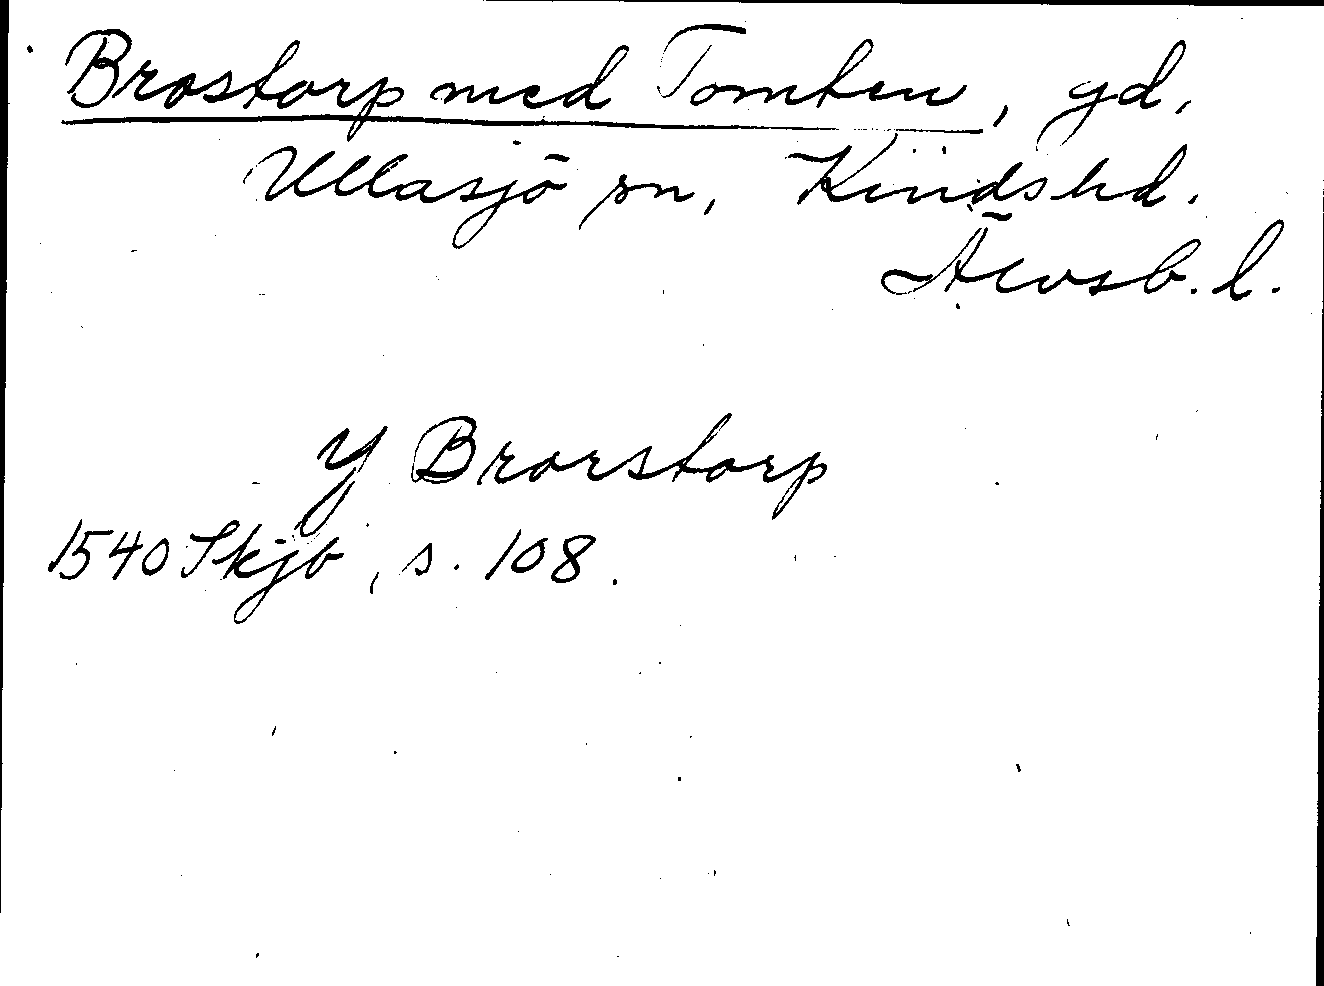 Brostorp med Tomten, gd,
Ullasjö sn, Kinds hd.
Älvsb. l.
Y Brorstorp
1540 Skjb, s. 108.